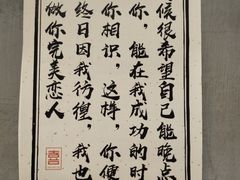 候很希望自己能晚点
你，能在我成功的时
你相识，这样，你便
终日因我彷徨，我也
做你完美恋人